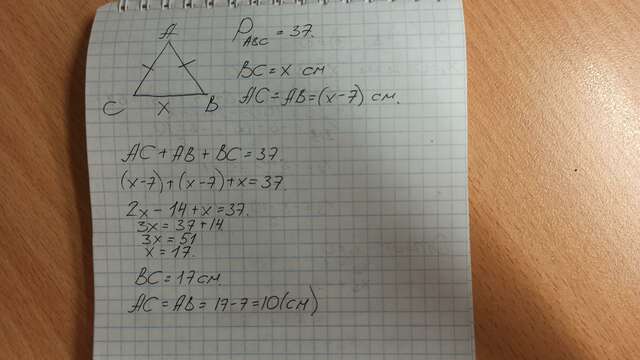 A
C x B
P ABC = 37.
BC = x см
AC = AB = (x-7) см.
AC + AB + BC = 37.
(x-7)+(x-7)+x=37.
2x - 14 + x = 37.
3x = 37+14
3x = 51
x = 17.
BC = 17 см.
AC = AB = 17-7=10(см)